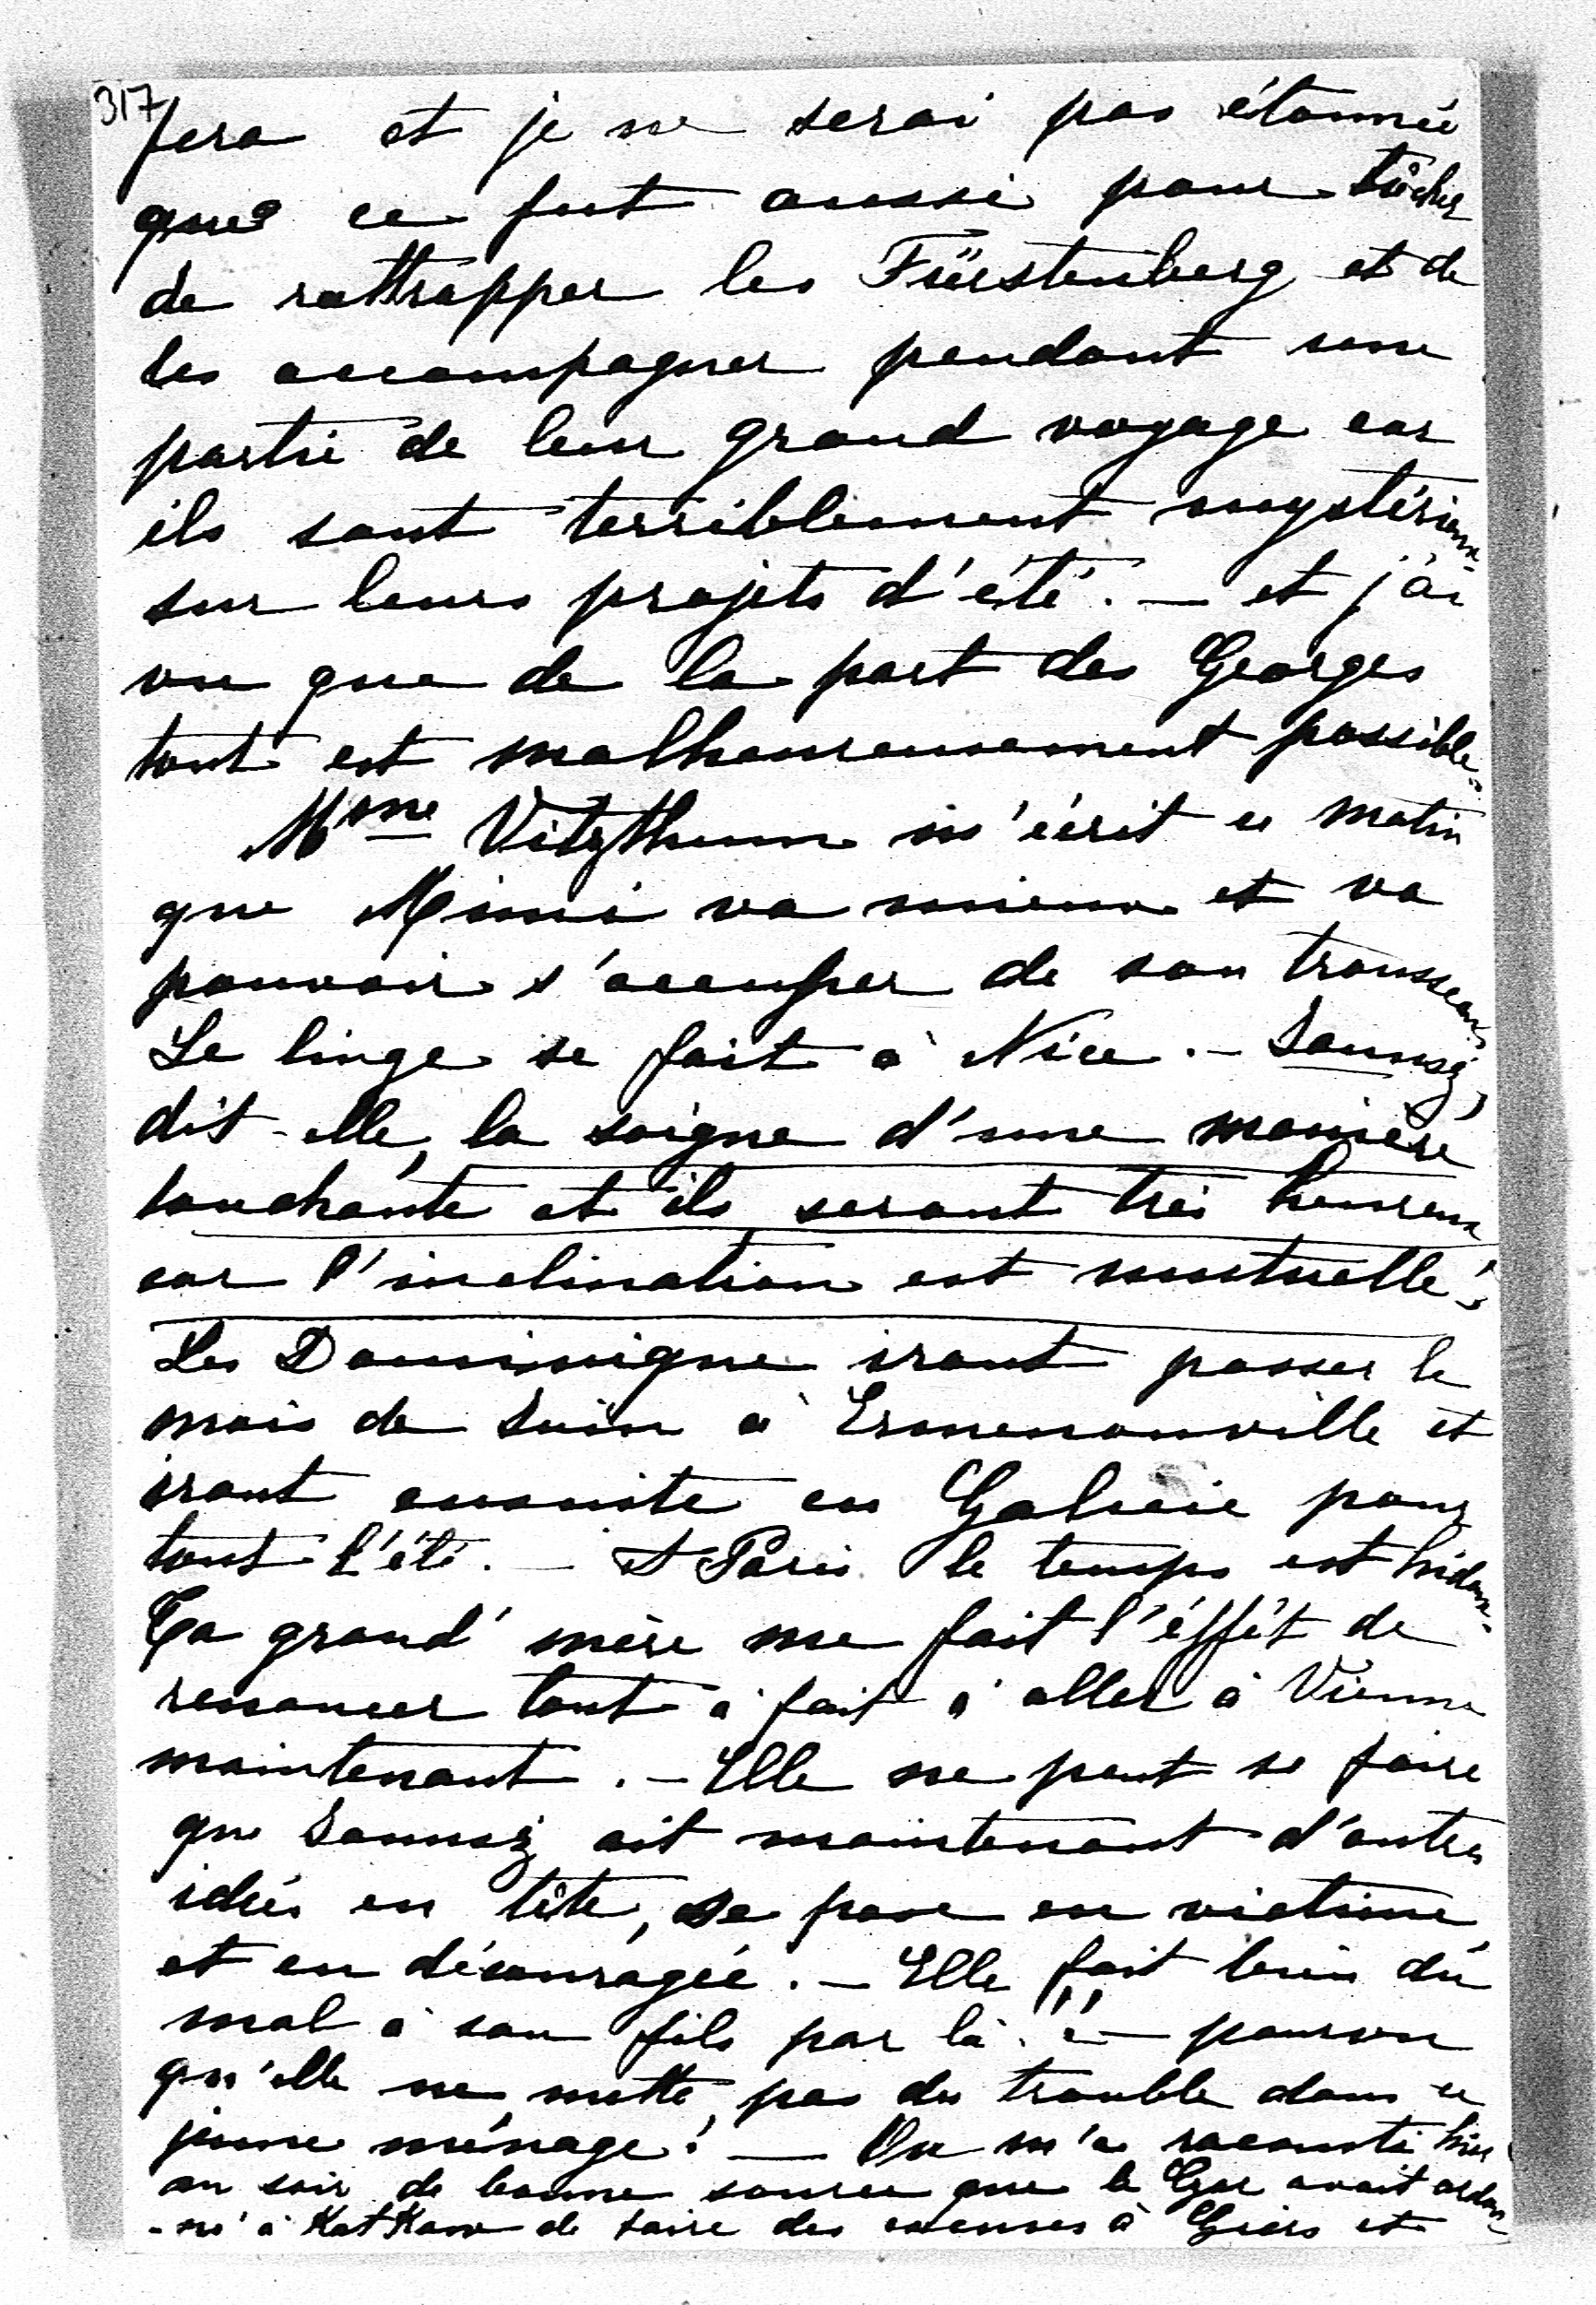 317
fera et je ne serai pas étonnée
que ce fut aussi pour tâcher
de rattrapper les Fürstenberg et de
les accompagner pendant une
partie de leur grand voyage car
ils sont terriblement mystérieux
sur leurs projets d'été. — et j'ai
vu que de la part des Georges
tout est malheureusement possible.
Mme Vitzthum m'écrit ce matin
que Mimi va mieux et va
pouvoir s'occuper de son trousseau.
Le linge se fait à Nice. —
dit-elle, la soigne d'une manière
touchante et ils seront très heureux
car l'inclination est mutuelle.
Les Dominique iront passer le
mois de Juin à Ermenonville et
iront ensuite en Galicie pour
tout l'été. — A Paris le temps est hideux.
Ta grand'mère me fait l'éffét de
renoncer tout à fait à aller à Vienne
maintenant. — Elle ne peut se faire
que ait maintenant d'autres
idées en tête, se pose en victime
et en découragée. — Elle fait bien du
mal à son fils par là! — pourvu
qu'elle ne mette pas du trouble dans ce
jeune ménage! — On m'a raconté hier
au soir de bonne source que le Czar avait ordon
-né à Katkow de faire des excuses à Giers et